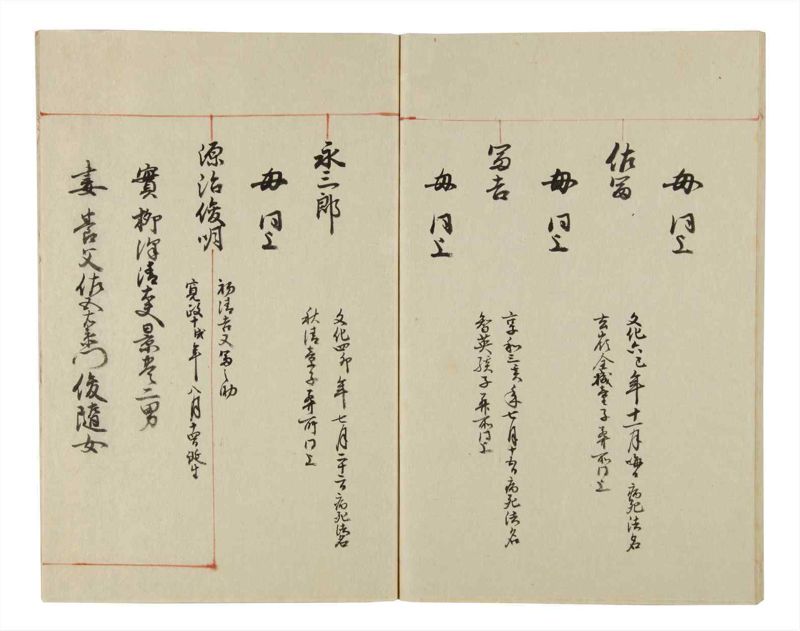 母 同上
佐冨
文化六巳年十一月晦日病死法名
童子葬所同上
母 同上
冨吉
享和三亥年七月十五日病死法名
智英孩子葬所同上
母 同上
永三郎
文化四卯年七月二十二日病死法名
秋清童子葬所同上
母 同上
源治俊明
初清吉又冨之助
寛政十戌年八月十四日誕生
實 柳澤清太夫景巻二男
妻 養父佐五右衛門俊隨女